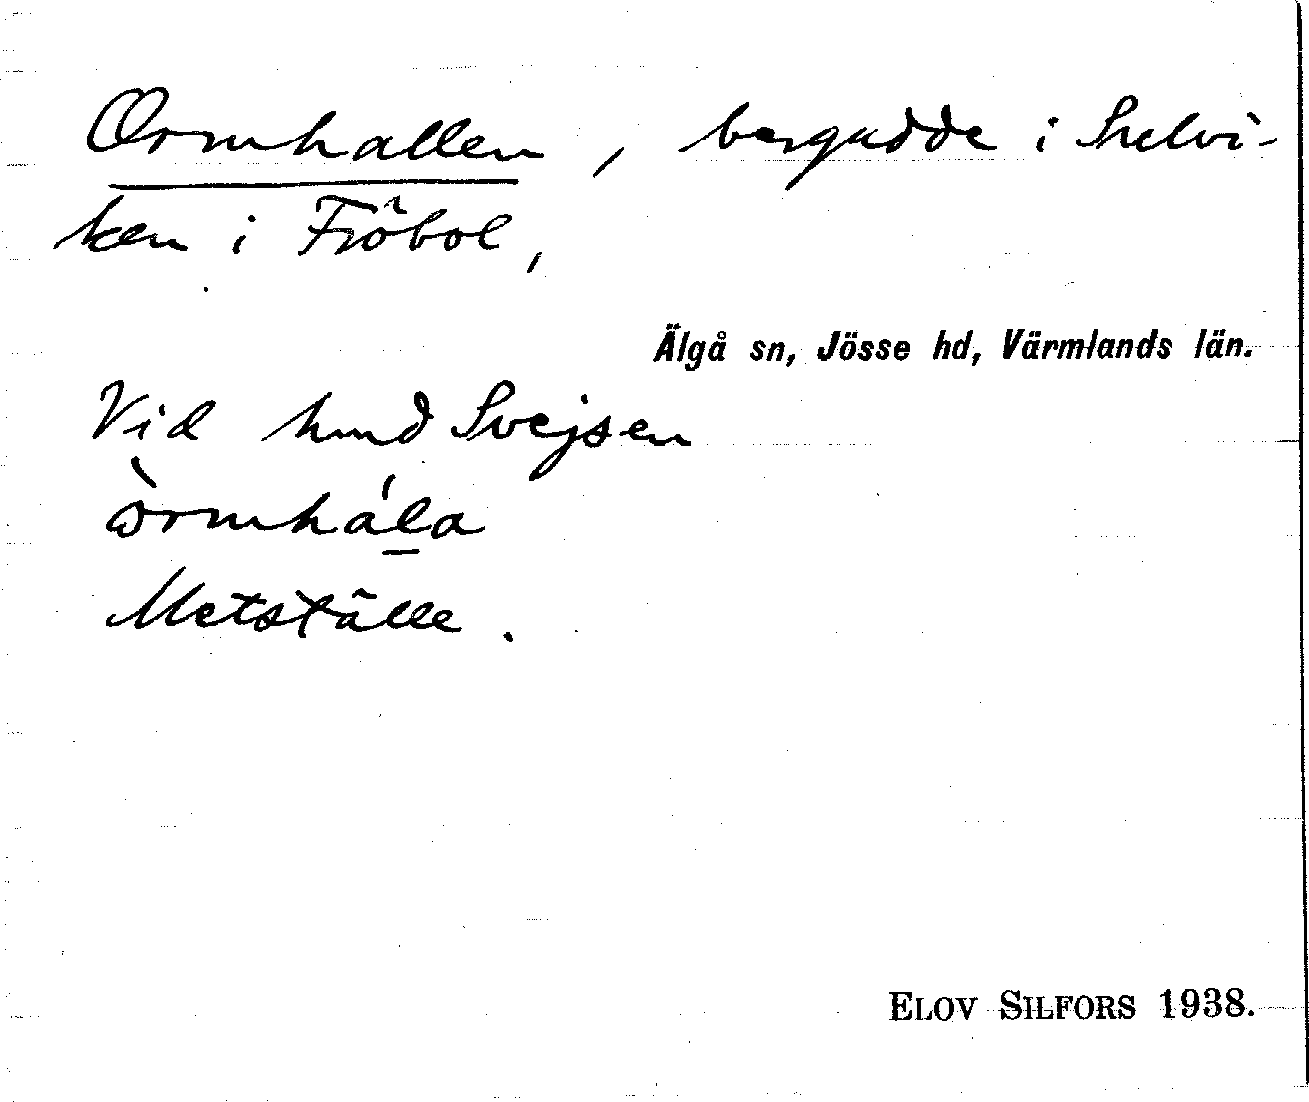 Ormhallen, bergudde i Snelvi-
ken i Fröbol,
Älgå sn, Jösse hd, Värmlands län.
Vid hmd Svejsen
òrmháḷa
Metställe.
ELOV SILFORS 1938.